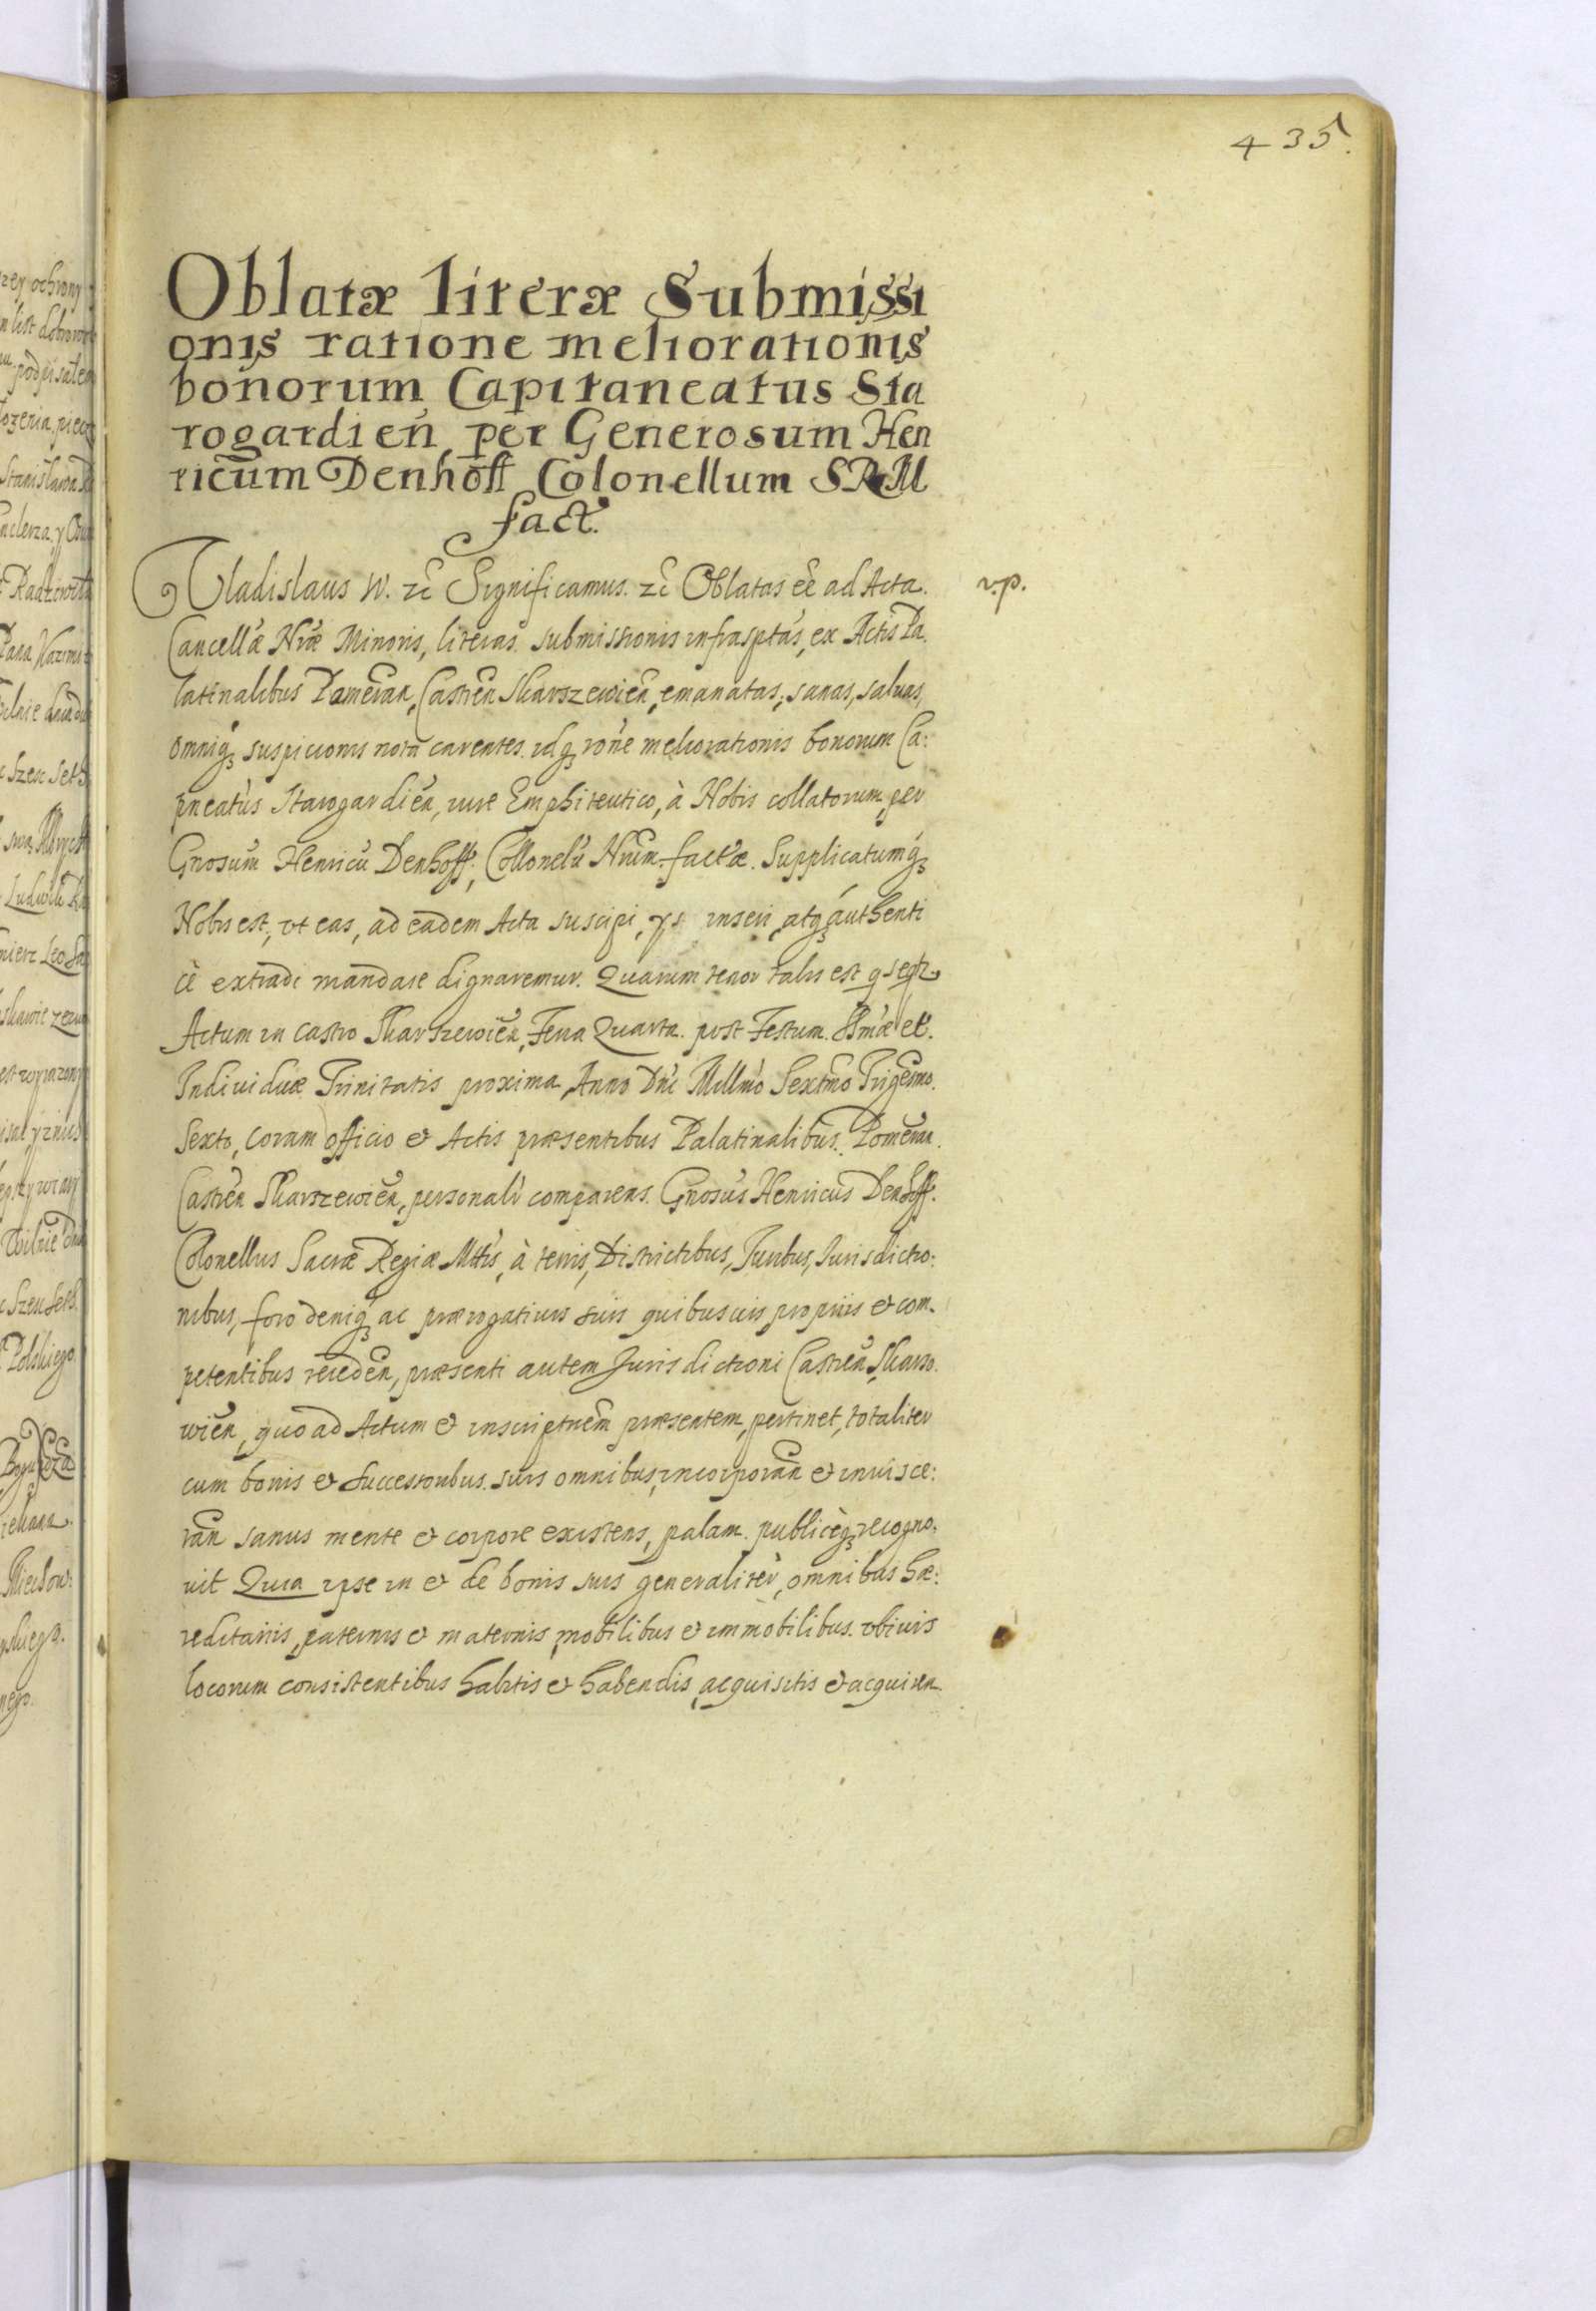 435.
Oblatæ literæ Submissi
onis ratione meliorationis
bonorum Capitaneatus Sta
rogardien̄ per Generosum Hen
ricum Denhoff Colonellum SRM
fact.
Vladislaus IV. zc Significamus. zc Oblatas eē ad Acta. v.p.
Cancellæ Nræ Minoris, literas submissionis infrasptas, ex Actis Pa
latinalibus Pomeran, Castren Skarszewien, emanatas, sanas, saluas,
omniq3 suspicionis nota carentes. idq3 rone meliorationis bonorum Ca:
pneatus Starogardien, iure Emphiteutico, à Nobis collatorum, per
Gnosum Henricū Denhoff, Collonelū Nrum. factæ. Supplicatumq3
Nobis est, vt eas, ad eadem Acta suscipi, ys inseri, atq3 authenti
cè extradi mandare dignaremur. Quarum tenor talis est
Actum in castro Skarszewien, Feria Quarta post Festum. SSmæ et.
Indiuiduæ Trinitatis proxima, Anno Dni Millmo Sextmo Trigesmo.
Sexto, coram officio et Actis præsentibus Palatinalibus. Pomeran.
Castren Skarszewien, personalr comparens. Gnosus Henricus Denhoff.
Colonellus Sacræ Regiæ Mttis, à terris, Districtibus, Juribus, Jurisdictio:
nibus, foro deniq3 ac prærogatiuis suis quibusuis proprijs et com.
petentibus receden, præsenti autem Jurisdictioni Castren Skarso.
wien, quo ad Actum et inscriptnem præsentem, pertinet, totaliter
cum bonis et successoribus suis omnibus, incorporan et inuisce:
ran sanus mente et corpore existens, palam publicèq3 recogno:
uit Quia ipse in et de bonis suis generaliter, omnibus hæ:
reditarijs, paternis et maternis, mobilibus et immobilibus vbiuis
locorum consistentibus habitis et habendis, acquisitis et acquiren